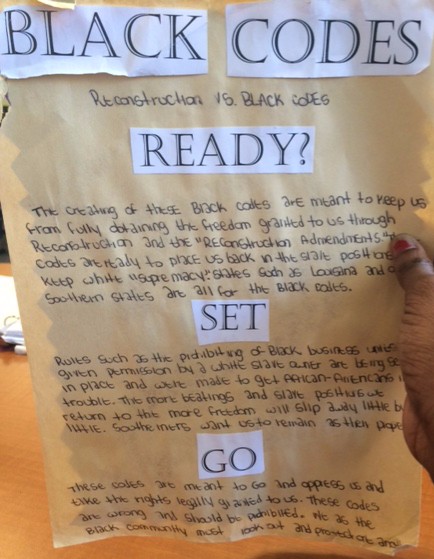 BLACK CODES
Reconstruction VS. BLACK CODES
READY?
The creating of these Black codes are meant to keep us
from fully obtaining the freedom granted to us through
Reconstruction and the "REconstruction Admendments."
codes are really to place us back in the slave positions
keep white "supremacy." States such as Lousiana and
Southern states are all for the Black codes.
SET
Rules such as the prohibiting of Black business unless
given permission by a white slave owner are being set
in place and were made to get African-Americans in
trouble. The more beatings and slave positions we
return to the more freedom will slip away little by
little. Southerners want us to remain as their
GO
These codes are meant to Go and oppress us and
take the rights legally granted to us. These codes
are wrong and should be prohibited. We as the
Black community must look out and protect one